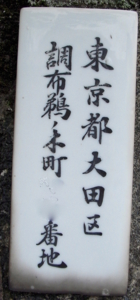 東京都大田区
調布鵜ノ木町 番地